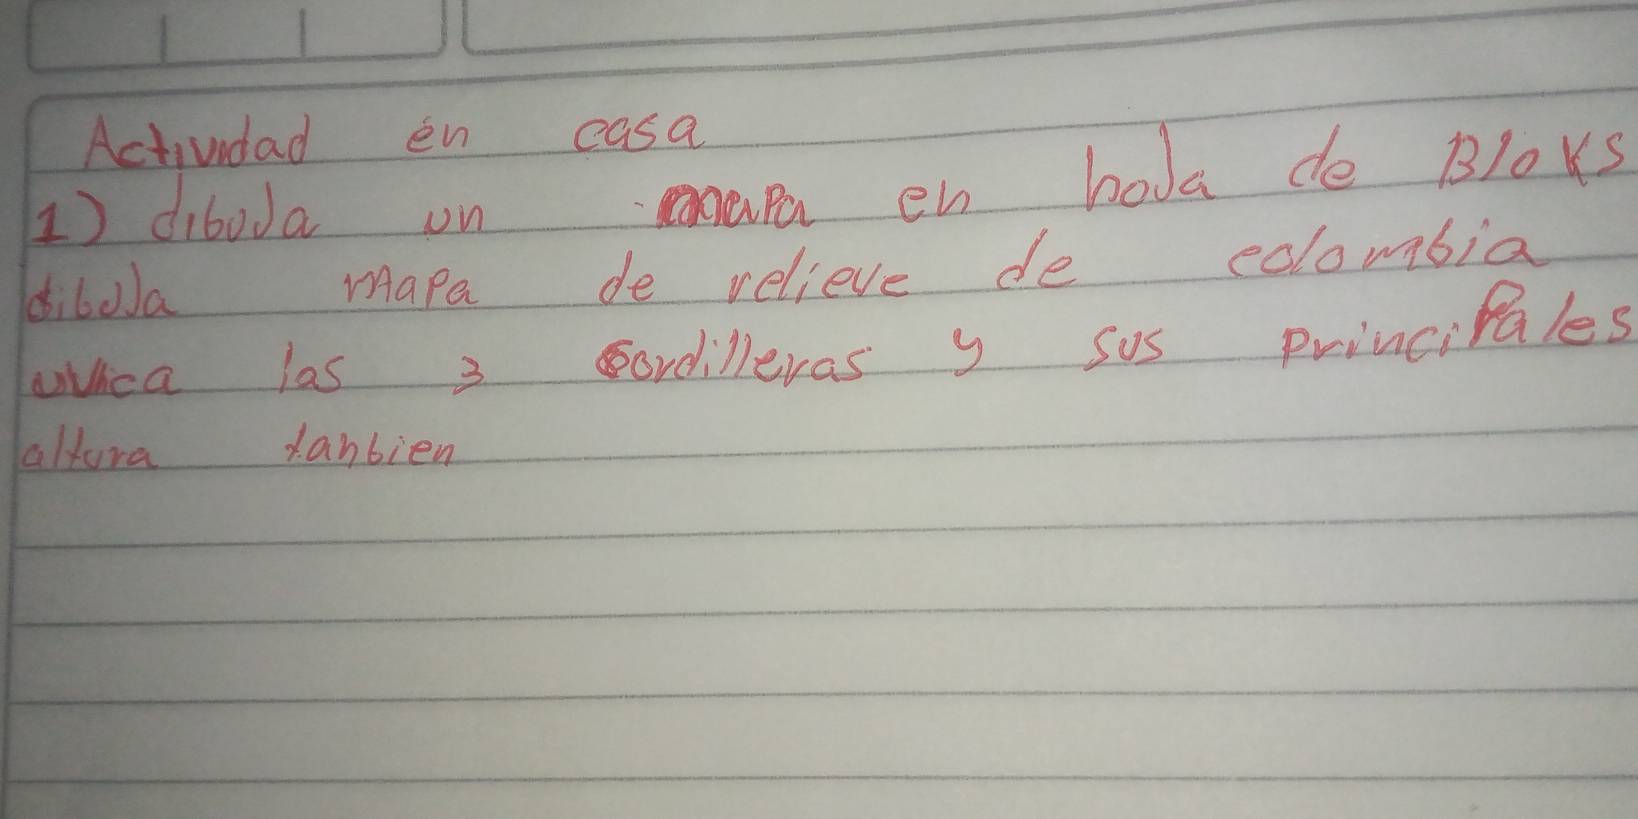 Actividad en casa
1) dibuja un mapa en hoja de Bloks
dibuja mapa de relieve de colombia
uvica las 3 cordilleras y sus principales
altura tanbien